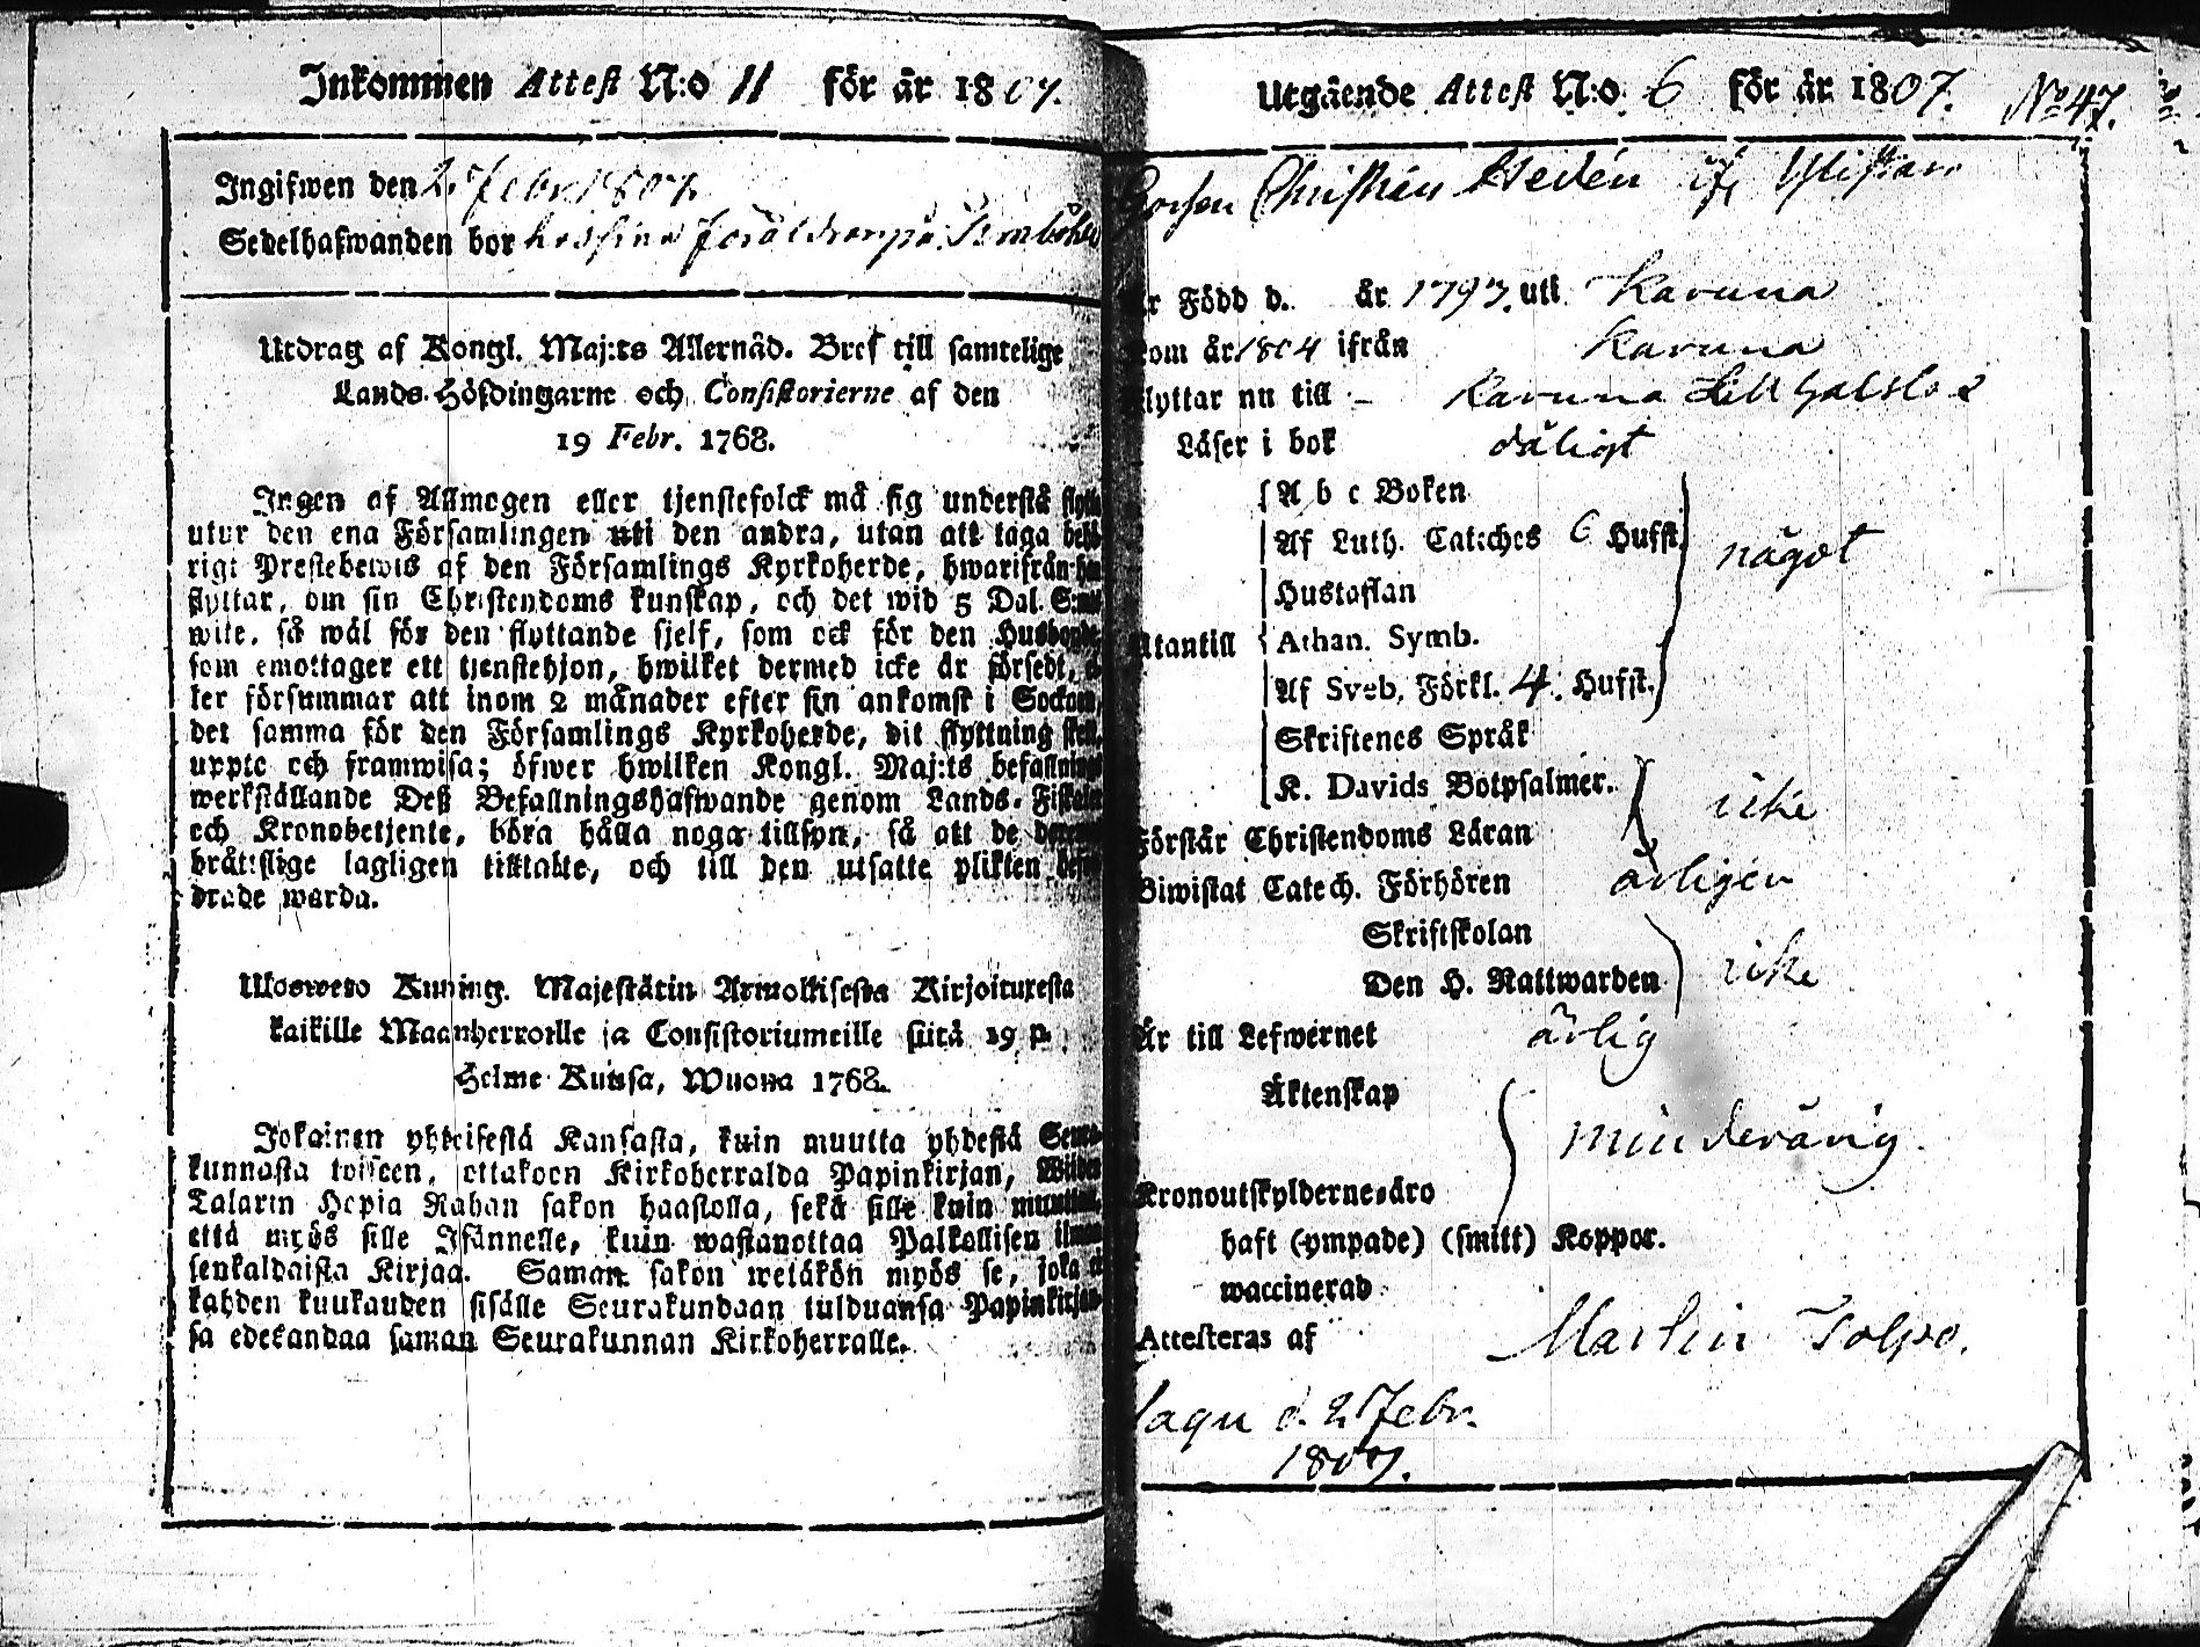 Inkommen Attest N:o 11 för år 1807.
Ingifwen den 2. Febr. 1807.
Sedelhafwanden bor hos sina föräldrar på
Utdrag af Kongl. Maj:ts Allernåd. Bref till samtelige
Lands-Höfdingarne och Consistorierne af den
19 Febr. 1768.
Ingen af Allmogen eller tjenstefolck må sig understå
utur den ena Församlingen uti den andra, utan att taga
rigt Prestebewis af den Församlings Kyrkoherde, hwarifrån
flyttar, om sin Christendoms kunskap, och det wid 5 Dal. S:mt
wite, så wäl för den flyttande sjelf, som ock för den Husbonde
som emottager ett tjenstehjon, hwilket dermed icke är försedt,
ler försummar att inom 2 månader efter sin ankomst i Socken,
det samma för den Församlings Kyrkoherde, dit flyttning sker,
uppte och framwisa; öfwer hwilken Kongl. Maj:ts befallning
werkställande Deß Befallningshafwande genom Lands-Fiskaler
och Kronobetjente, böra hålla noga tillsyn, så att de
bråttslige lagligen tilltalte, och till den utsatte plikten
drade warda.
Ulosweto Kuning. Majestätin Armollisesta Kirjoituxesta
kaikille Maanherroille ja Consistoriumeille siitä 19 p.
Helme Kuusa, Wuonna 1768.
Jokainen yhteisestä Kansasta, kuin muutta yhdestä Seura-
kunnasta toiseen, ottakoon Kirkoherralda Papinkirjan, Wiiden
Talarin Hopia Rahan sakon haastolla, sekä sille kuin muuttaa,
että myös sille Isännelle, kuin wastanottaa Palkollisen ilman
senkaldaista Kirjaa. Saman sakon wetäkön myös se, joka ei
kahden kuukauden sisälle Seurakundaan tulduansa Papinkirjan-
sa edeskandaa saman Seurakunnan Kirkoherralle.
Utgående Attest N:o 6 för år 1807. No 47.
Christian Hedén if:
är Född d. år 1793. uti Karuna
kom år 1804 ifrån Karuna
flyttar nu till - Karuna
Läser i bok dåligt
A b c Boken
Af Luth. Cateches 6 Hufst. något
Hustaflan
Utantill Athan. Symb.
Af Sveb. Förkl. 4. Hufst.
Skriftenes Språk
K. Davids Botpsalmer. icke
Förstår Christendoms Läran
Biwistat Catech. Förhören årligen
Skriftskolan
Den H. Nattwarden icke
Är till Lefwernet ärlig
Äktenskap minderårig.
Kronoutskylderne äro
haft (ympade) (smitt) Koppor.
waccinerad
Attesteras af Martin Tolpo.
Sagu d. 2 Febr.
1807.